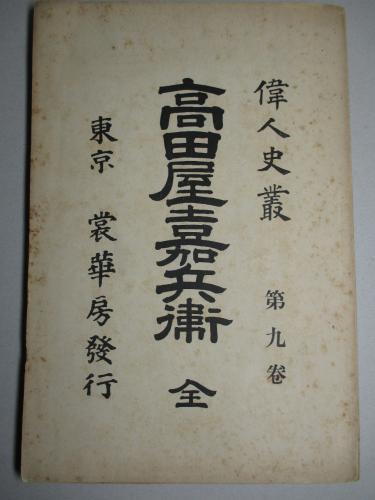 偉人史叢 第九卷
高田屋嘉兵衞 全
東京 裳華房發行